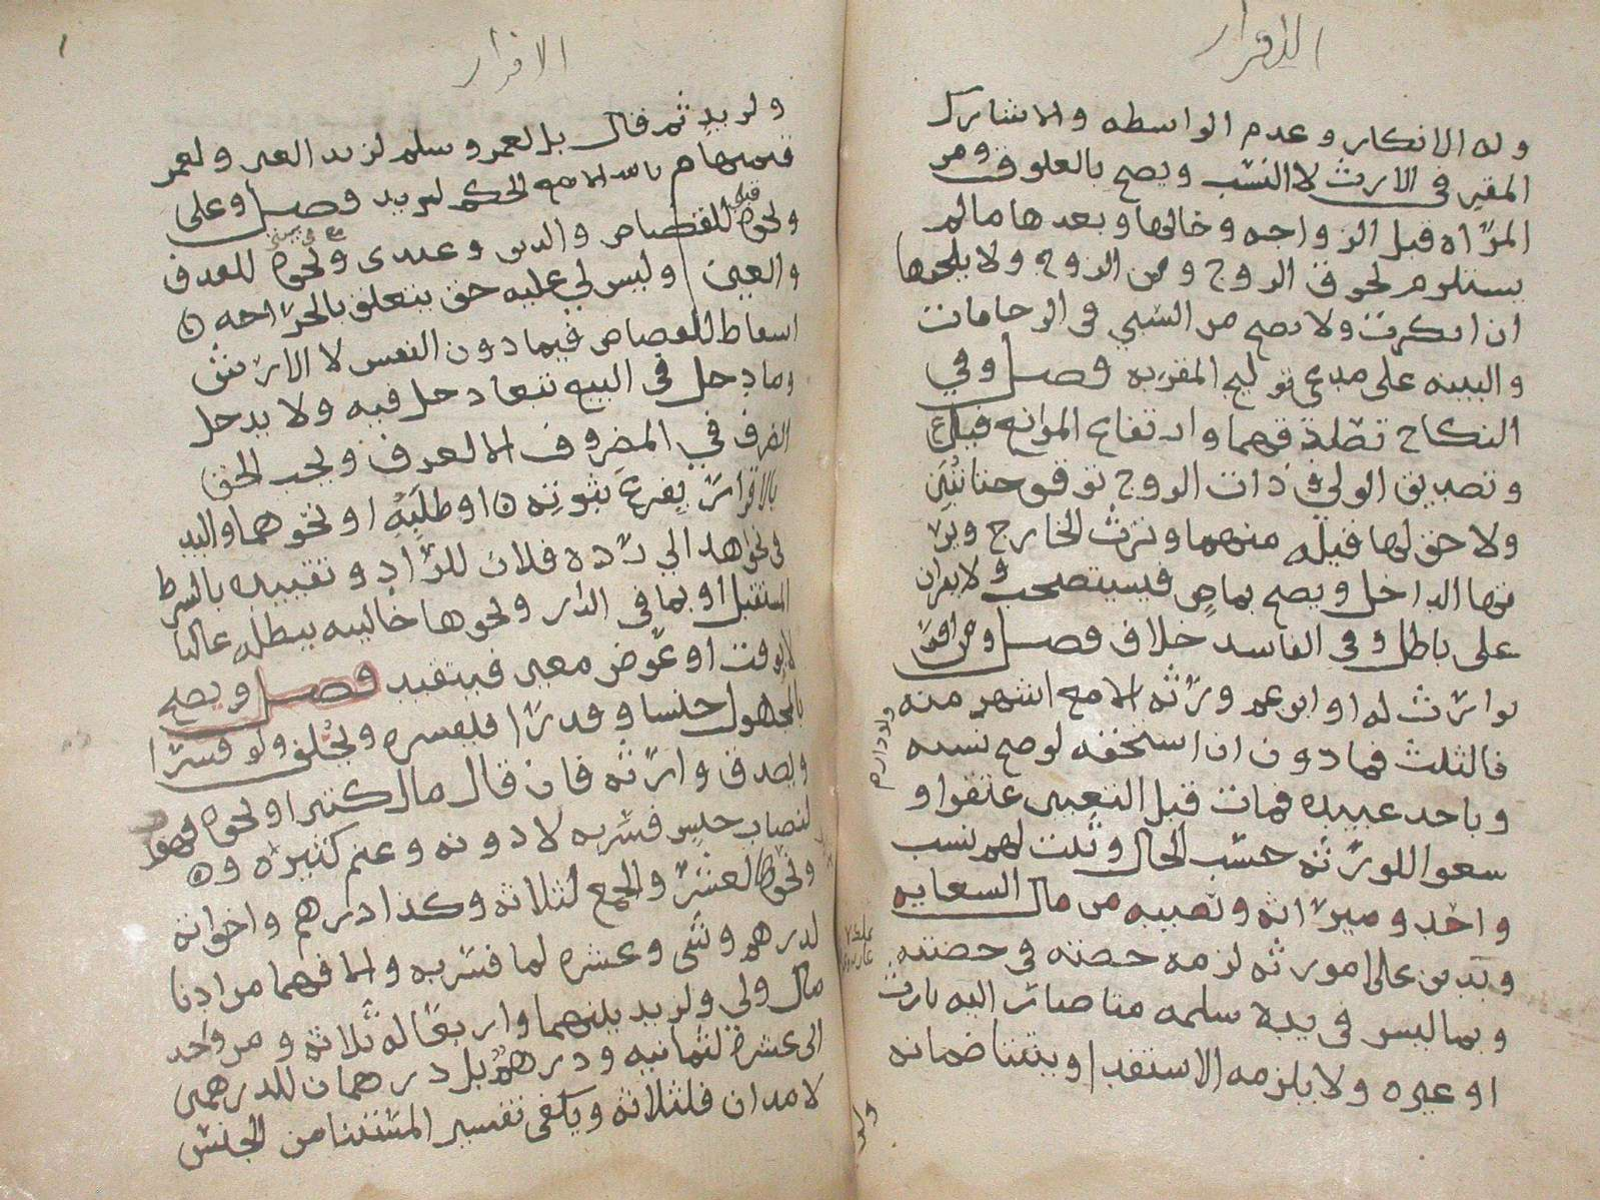 الاقرار
وله الانكار وعدم الواسطه والا شارك
المقر في الارث لا النسب ويصح بالعلوق ومن
المرأه قبل الزواجه وخالها وبعدها مالم
يستلزم لحوق الزوج ومن الزوج ولا يلحقها
ان انكرت ولا يصح من السبي في الرحامات
والبينه على مدعي توليج المقر به فصل وفي
النكاح تصادقهما وارتفاع الموانع قيل ع
وتصديق الولي وذات الزوج توقف حتا تبين
ولا حق لها قبله منهما وترث الخارج ويرثها
الداخل ويصح بماض فيستصحب ولا يقران
على باطل وفي الفاسد خلاف فصل ومن اقر
بوارث له او ابن عم ورثه الا مع اشهر منه
فالثلث فما دون ان استحقه لو صح نسبه
وباحد عبيده فمات قبل التعيين عتقوا و
سعوا للورثه حسب الحال وثبت لهم نسب
واحد وميراثه ونصيبه من مال السعايه
وبدين على مورثه لزمه حصته في حصته
وبما ليس في يده سلمه متا صار اليه بارث
او غيره ولا يلزمه الاستفدا ويتثنا ضمانه
ولو
الاقرار
ولزيد ثم قال بل لعمرو سلم لزيد العين ولعمرو
قيمتها م الا مع الحكم لزيد فصل وعلي
ونحوه للقصاص والدين وعندي ونحوه للقذف
والعين وليس لي عليه حق يتعلق بالجراحه
اسقاط للقصاص فيما دون النفس لا الارش
وما دخل في البيع تبعا دخل فيه ولا يدخل
الظرف في المظروف الا لعرف ويجب الحق
بالاقرار بفرع ثبوته او طلبه او نحوهما واليد
في نحو هذا لي رده فلان للراد وتقييده بالشرط
المستقبل او بما في الدار ونحوها خاليه يبطله غالبا
لا بوقت او عوض معين فيتقيد فصل ويصح
بالمجهول جنسا وقدرا فيفسره ويحلف ولو قسرا
ويصدق وارثه فان قال مال كثير او نحوه فهو
لنصاب جنس فسر به لا دونه وغنم كثيره و
ونحوها لعشر والجمع لثلاثه وكذا درهم واخواته
لدرهم وشي وعشره لما فسر به والا فهما من ادنا
مال ولي ولزيد بينهما واربعا له ثلاثه ومن واحد
الى عشره لثمانيه ودرهم بل درهمان للدرهمين
لا مدان فلثلاثه ويكفي تفسير المستثنا من الجنس